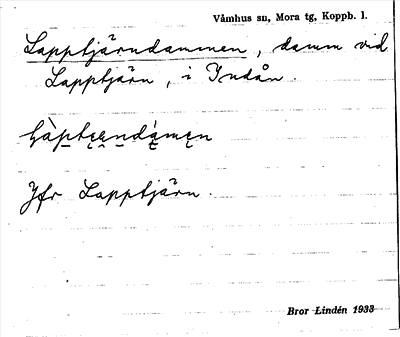 Våmhus sn, Mora tg, Koppb. l.
Lapptjärndammen, damm vid
Lapptjärn, i Indån.
Jfr Lapptjärn.
Bror Lindén 1933